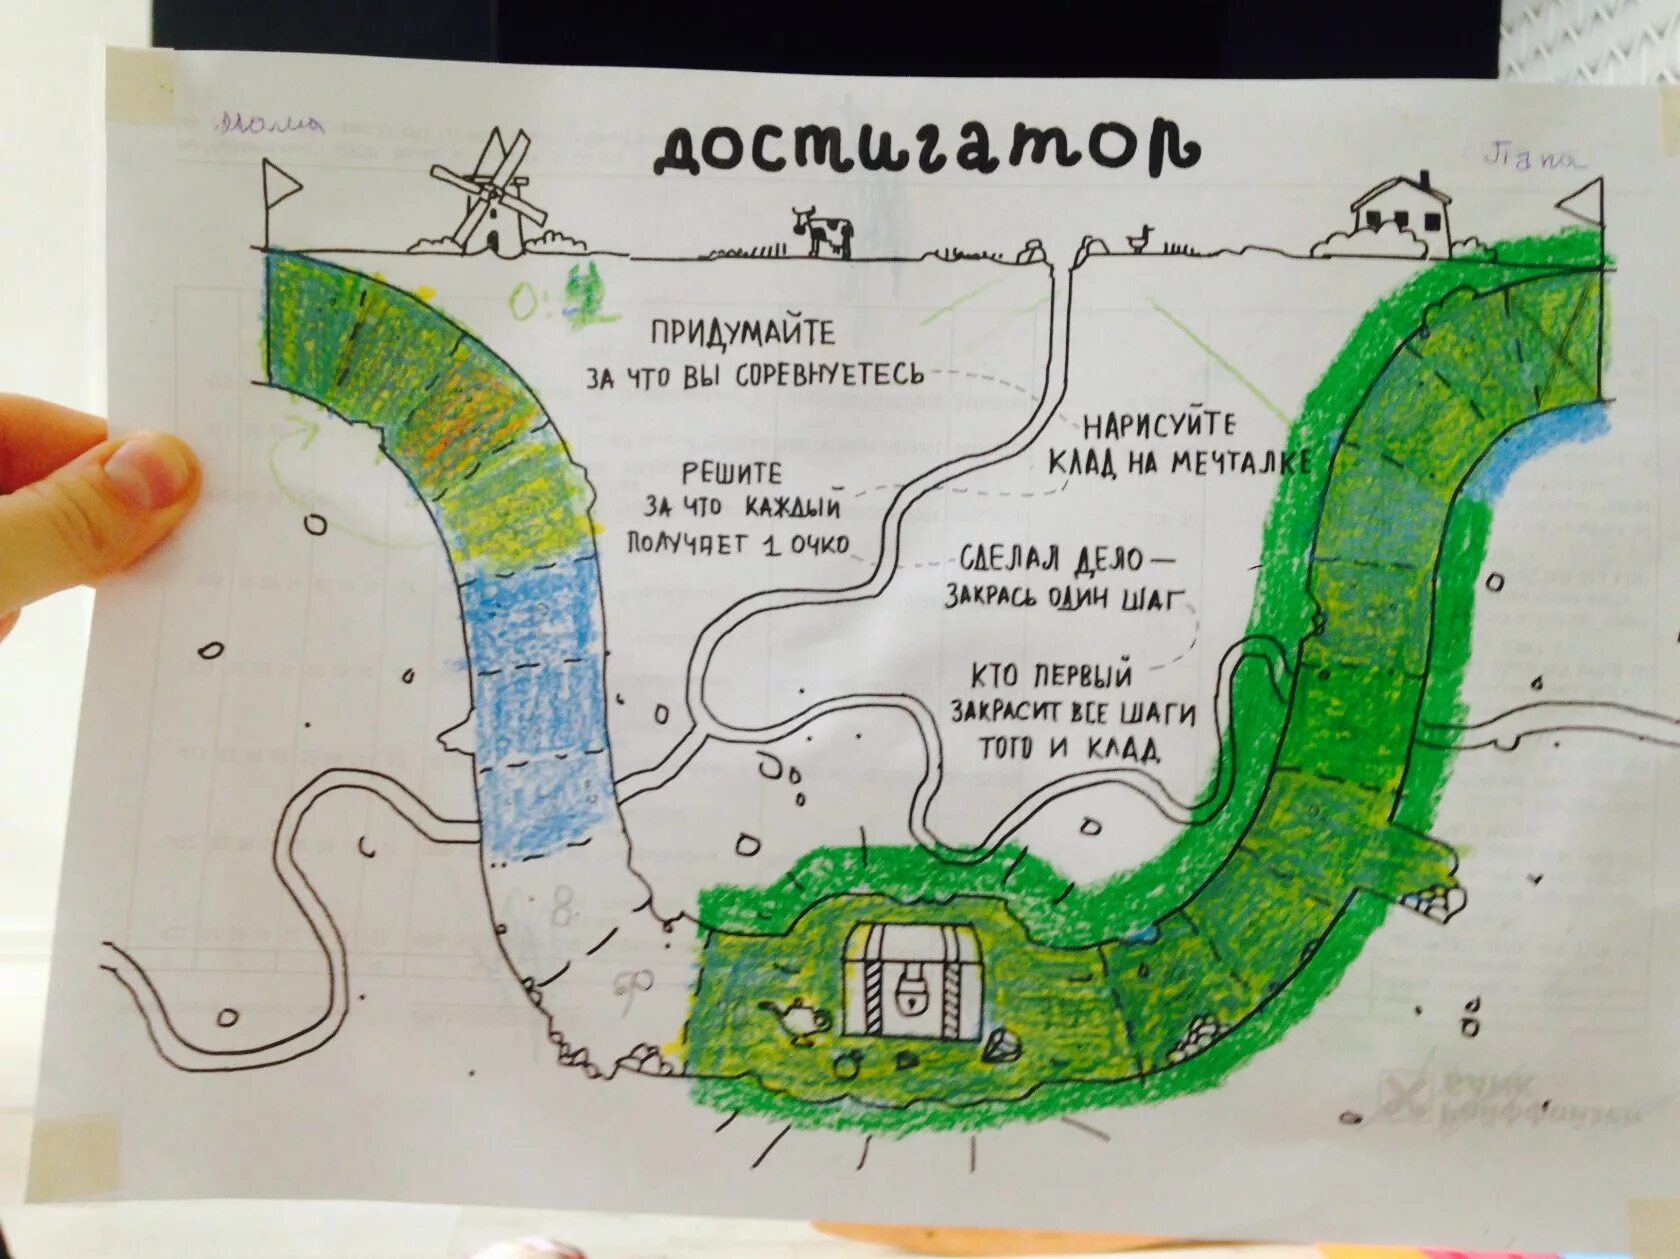 Папа
ДОСТИГАТОР
ПРИДУМАЙТЕ
ЗА ЧТО ВЫ СОРЕВНУЕТЕСЬ
НАРИСУЙТЕ
КЛАД НА МЕЧТАЛКЕ
РЕШИТЕ
ЗА ЧТО КАЖДЫЙ
ПОЛУЧАЕТ 1 ОЧКО
СДЕЛАЛ ДЕЛО —
ЗАКРАСЬ ОДИН ШАГ
КТО ПЕРВЫЙ
ЗАКРАСИТ ВСЕ ШАГИ
ТОГО И КЛАД
8